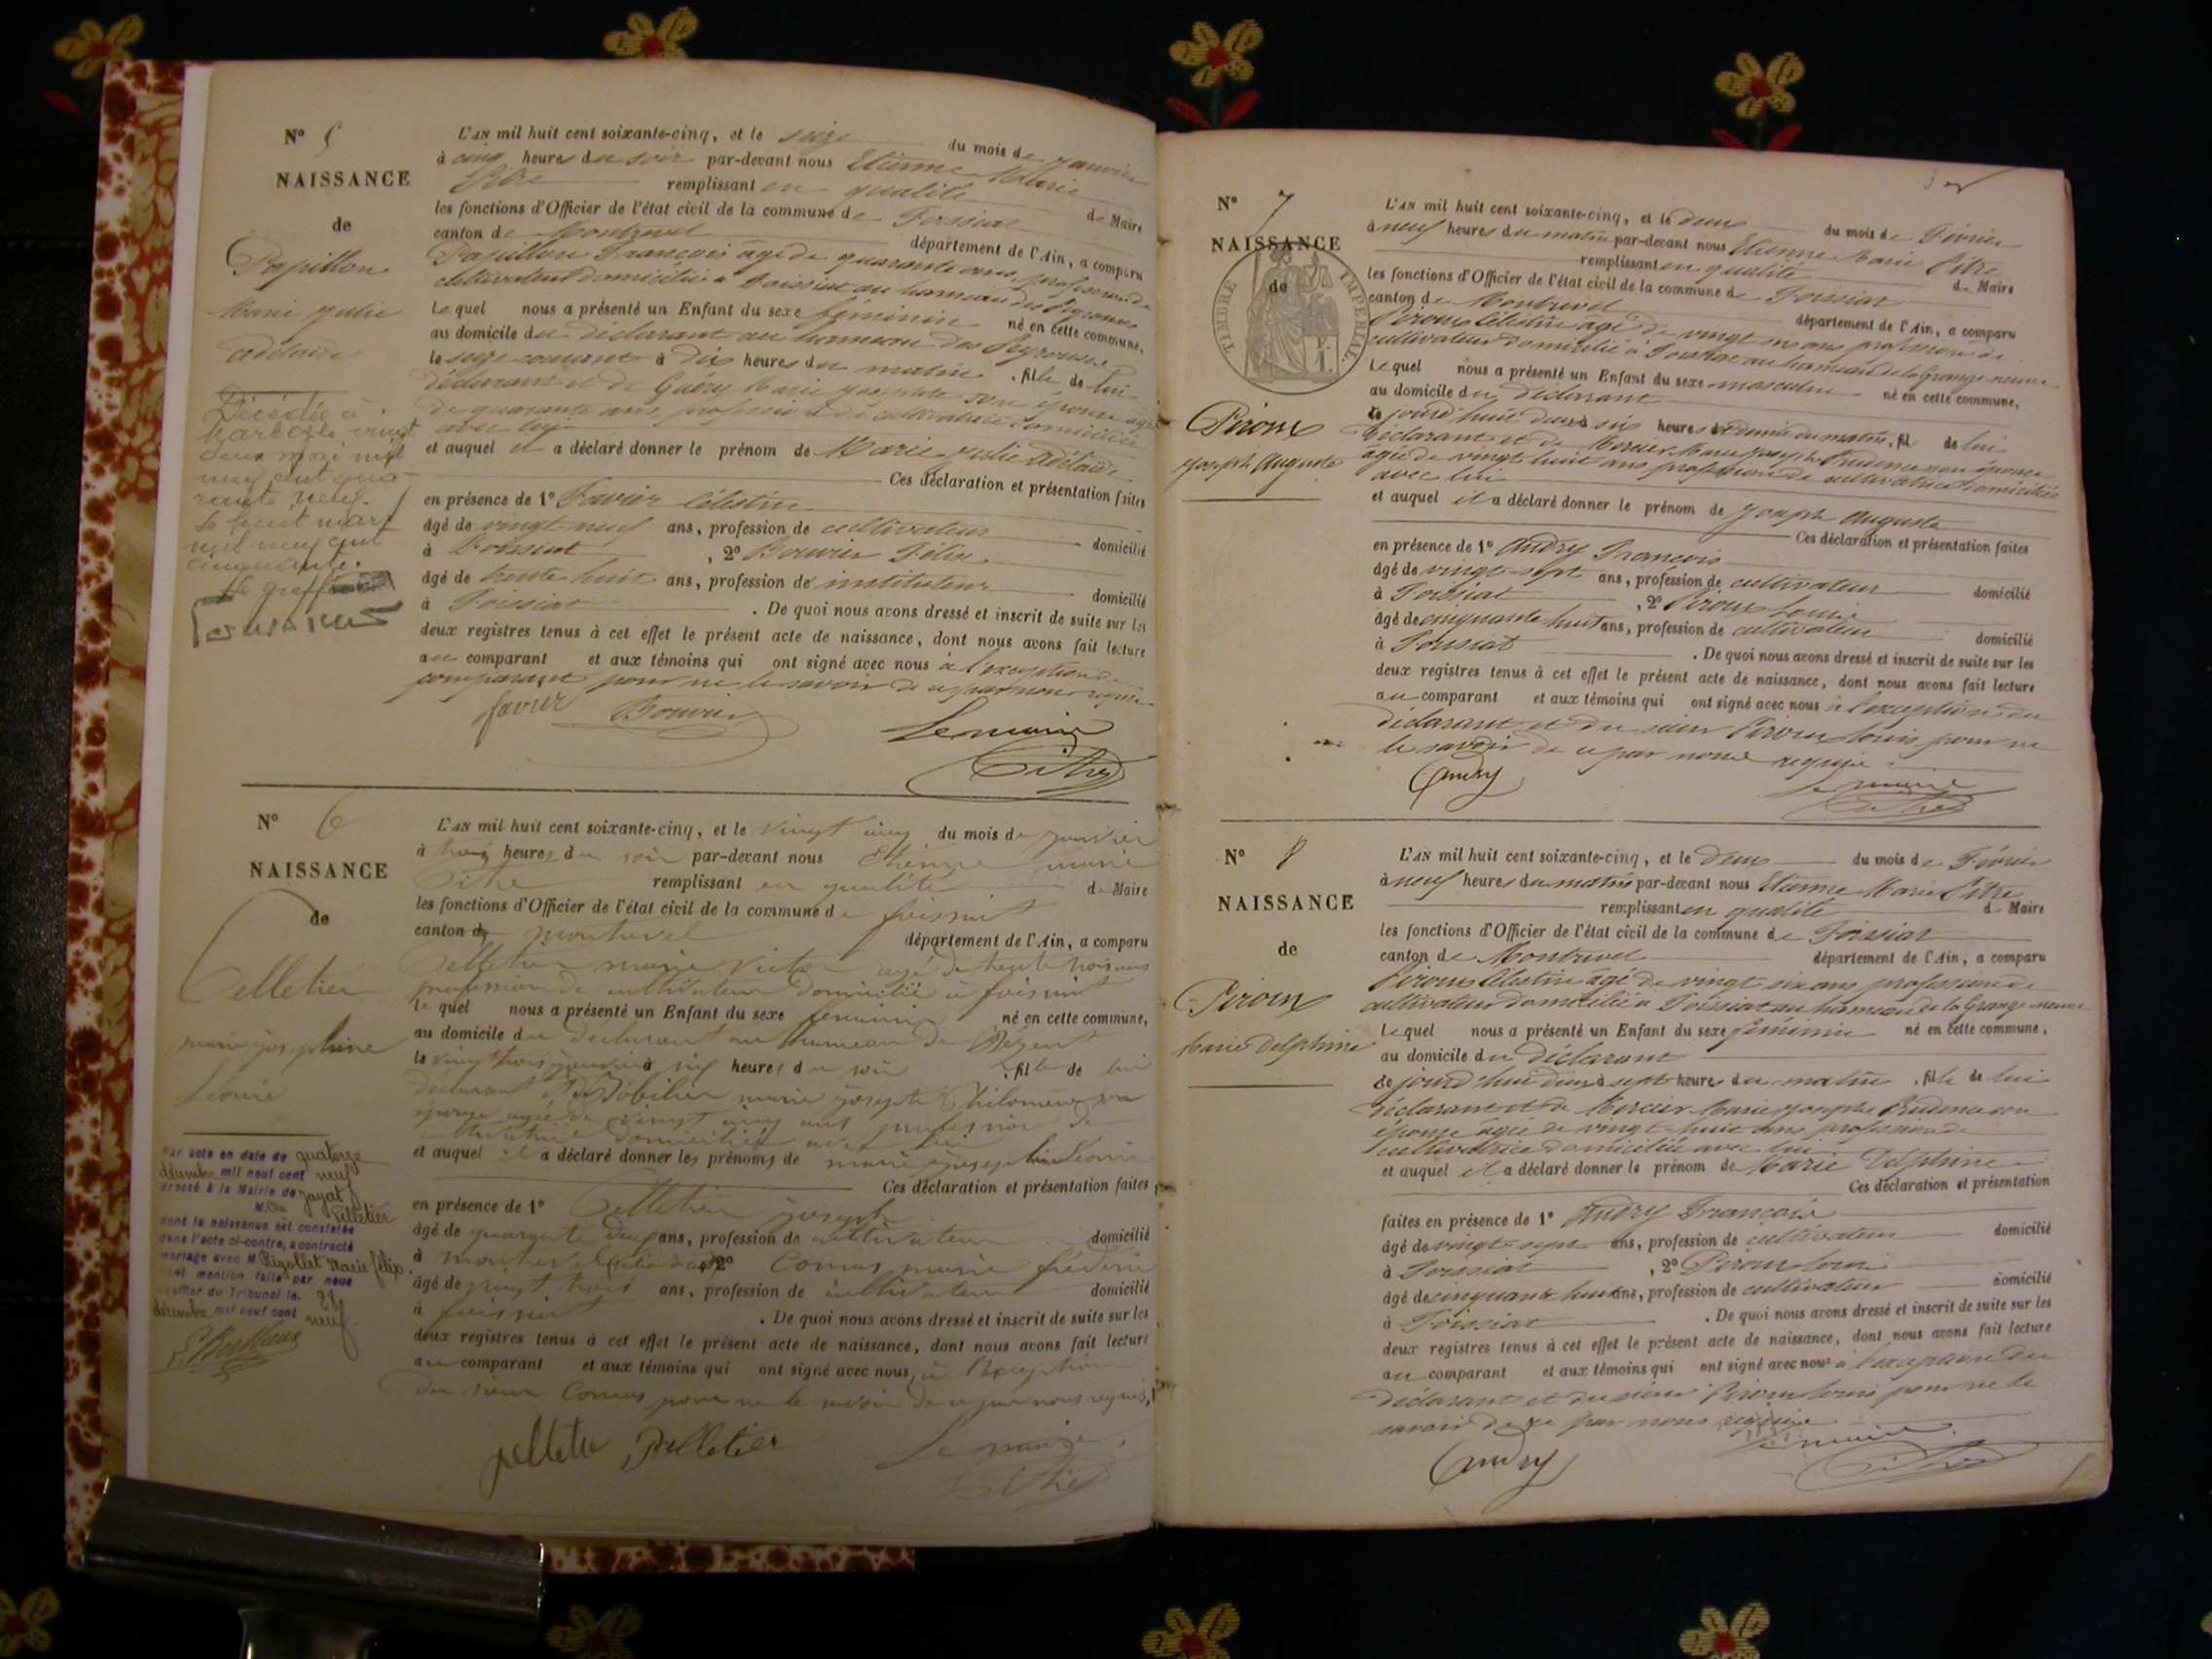 N° 5
NAISSANCE
de
Papillon
Marie Julie
Adélaïde
Décédée à
Marboz le vingt
deux mai mil
neuf cent qua-
rante neuf.
Le huit mars
mil neuf cent
cinquante.
Le greffier
L'AN mil huit cent soixante-cinq, et le seize du mois de Janvier
à cinq heures du soir par-devant nous Etienne Marie
Pitre remplissant en qualité de Maire
les fonctions d'Officier de l'état civil de la commune de Foissiat
canton de Montrevel département de l'Ain, a comparu
Papillon François âgé de quarante ans, profession de
cultivateur domicilié à Foissiat au hameau des
lequel nous a présenté un Enfant du sexe féminin né en cette commune,
au domicile du déclarant au hameau des
le seize courant à dix heures du matin, fille de lui
déclarant et de Guéry Marie Josephte son épouse âgée
de quarante ans, profession de cultivatrice domiciliée
avec lui
et auquel il a déclaré donner le prénom de Marie Julie Adélaïde
Ces déclaration et présentation faites
en présence de 1° Favier Célestin
âgé de vingt-neuf ans, profession de cultivateur domicilié
à Foissiat, 2° Bouvier Félix
âgé de trente huit ans, profession de instituteur domicilié
à Foissiat. De quoi nous avons dressé et inscrit de suite sur les
deux registres tenus à cet effet le présent acte de naissance, dont nous avons fait lecture
au comparant et aux témoins qui ont signé avec nous à l'exception du
comparant pour ne le savoir de ce par nous requis
favier Bouvier Le maire
Pitre
N° 6
NAISSANCE
de
Pelletier
marie joséphine
Léonie
Par acte en date du quatorze
décembre mil neuf cent neuf
dressé à la Mairie de Jayat
Mlle Pelletier
dont la naissance est constatée
dans l'acte ci-contre, a contracté
mariage avec M. Rigollet Marie félix
Dont mention faite par nous
greffier du Tribunal le
décembre mil neuf cent neuf
L'AN mil huit cent soixante-cinq, et le vingt cinq du mois de janvier
à trois heures du soir par-devant nous Etienne marie
Pitre remplissant en qualité de Maire
les fonctions d'Officier de l'état civil de la commune de foissiat
canton de montrevel département de l'Ain, a comparu
Pelletier marie Victor âgé de trente trois ans
profession de cultivateur domicilié à foissiat
lequel nous a présenté un Enfant du sexe féminin né en cette commune,
au domicile du déclarant au hameau de
le vingt trois janvier à six heures du soir, fille de lui
déclarant et de Bobillon marie josephte Philomène son
épouse agée de vingt cinq ans profession de
cultivatrice domiciliée avec lui
et auquel il a déclaré donner les prénoms de marie joséphine Léonie
Ces déclaration et présentation faites
en présence de 1° Pelletier joseph
âgé de quarante deux ans, profession de cultivateur domicilié
à montrevel 2° Comas marie
âgé de vingt trois ans, profession de cultivateur domicilié
à foissiat. De quoi nous avons dressé et inscrit de suite sur les
deux registres tenus à cet effet le présent acte de naissance, dont nous avons fait lecture
au comparant et aux témoins qui ont signé avec nous, à l'exception
du sieur Comas pour ne le savoir de ce par nous requis,
pelletie Pelletier Le maire
Pitre
N° 7
NAISSANCE
de
TIMBRE IMPÉRIAL
Piroux
Joseph Auguste
L'AN mil huit cent soixante-cinq, et le deux du mois de Février
à neuf heures du matin par-devant nous Etienne Marie Pitre
remplissant en qualité de Maire
les fonctions d'Officier de l'état civil de la commune de Foissiat
canton de Montrevel département de l'Ain, a comparu
Piroux Célestin âgé de vingt six ans profession de
cultivateur domicilié à Foissiat au hameau de la Grange neuve
lequel nous a présenté un Enfant du sexe masculin né en cette commune,
au domicile du déclarant
le jourd'hui deux à six heures et demie du matin, fil de lui
déclarant et de Mercier Marie Josephe Prudence son épouse
âgée de vingt huit ans profession de cultivatrice domiciliée
avec lui
et auquel il a déclaré donner le prénom de Joseph Auguste
Ces déclaration et présentation faites
en présence de 1° Andry François
âgé de vingt-sept ans, profession de cultivateur domicilié
à Foissiat, 2° Piroux Louis
âgé de cinquante huit ans, profession de cultivateur domicilié
à Foissiat. De quoi nous avons dressé et inscrit de suite sur les
deux registres tenus à cet effet le présent acte de naissance, dont nous avons fait lecture
au comparant et aux témoins qui ont signé avec nous à l'exception du
déclarant et du sieur Piroux Louis pour ne
le savoir de ce par nous requis
Andry Le maire
Pitre
N° 8
NAISSANCE
de
Piroux
Marie Delphine
L'AN mil huit cent soixante-cinq, et le deux du mois de Février
à neuf heures du matin par-devant nous Etienne Marie Pitre
remplissant en qualité de Maire
les fonctions d'Officier de l'état civil de la commune de Foissiat
canton de Montrevel département de l'Ain, a comparu
Piroux Célestin âgé de vingt six ans profession de
cultivateur domicilié à Foissiat au hameau de la Grange neuve
lequel nous a présenté un Enfant du sexe féminin né en cette commune,
au domicile du déclarant
le jourd'hui deux à sept heures du matin, fille de lui
déclarant et de Mercier Marie Josephe Prudence son
épouse âgée de vingt-huit ans profession de
cultivatrice domiciliée avec lui
et auquel il a déclaré donner le prénom de Marie Delphine
Ces déclaration et présentation
faites en présence de 1° Andry François
âgé de vingt sept ans, profession de cultivateur domicilié
à Foissiat, 2° Piroux Louis
âgé de cinquante huit ans, profession de cultivateur domicilié
à Foissiat. De quoi nous avons dressé et inscrit de suite sur les
deux registres tenus à cet effet le présent acte de naissance, dont nous avons fait lecture
au comparant et aux témoins qui ont signé avec nous à l'exception du
déclarant et du sieur Piroux Louis pour ne le
savoir de ce par nous requis
Andry Le maire
Pitre